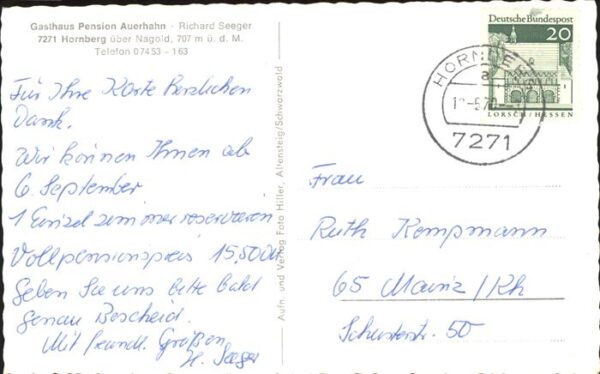 Gasthaus Pension Auerhahn - Richard Seeger
7271 Hornberg über Nagold, 707 m ü. d. M.
Telefon 07453-163
Für Ihre Karte herzlichen
Dank.
Wir können Ihnen ab
6. September
1 Einzelzimmer reservieren
Vollpensionspreis 15,50 DM
Geben Sie uns bitte bald
genau Bescheid.
Mit freundl. Grüßen
H. Seeger
Aufn. und Verlag Foto Hiller, Altensteig/Schwarzwald
Deutsche Bundespost
20
LORSCH/HESSEN
HORNBERG
a
7271
Frau
Ruth Kempmann
65 Mainz/Rh
Schusterstr. 50